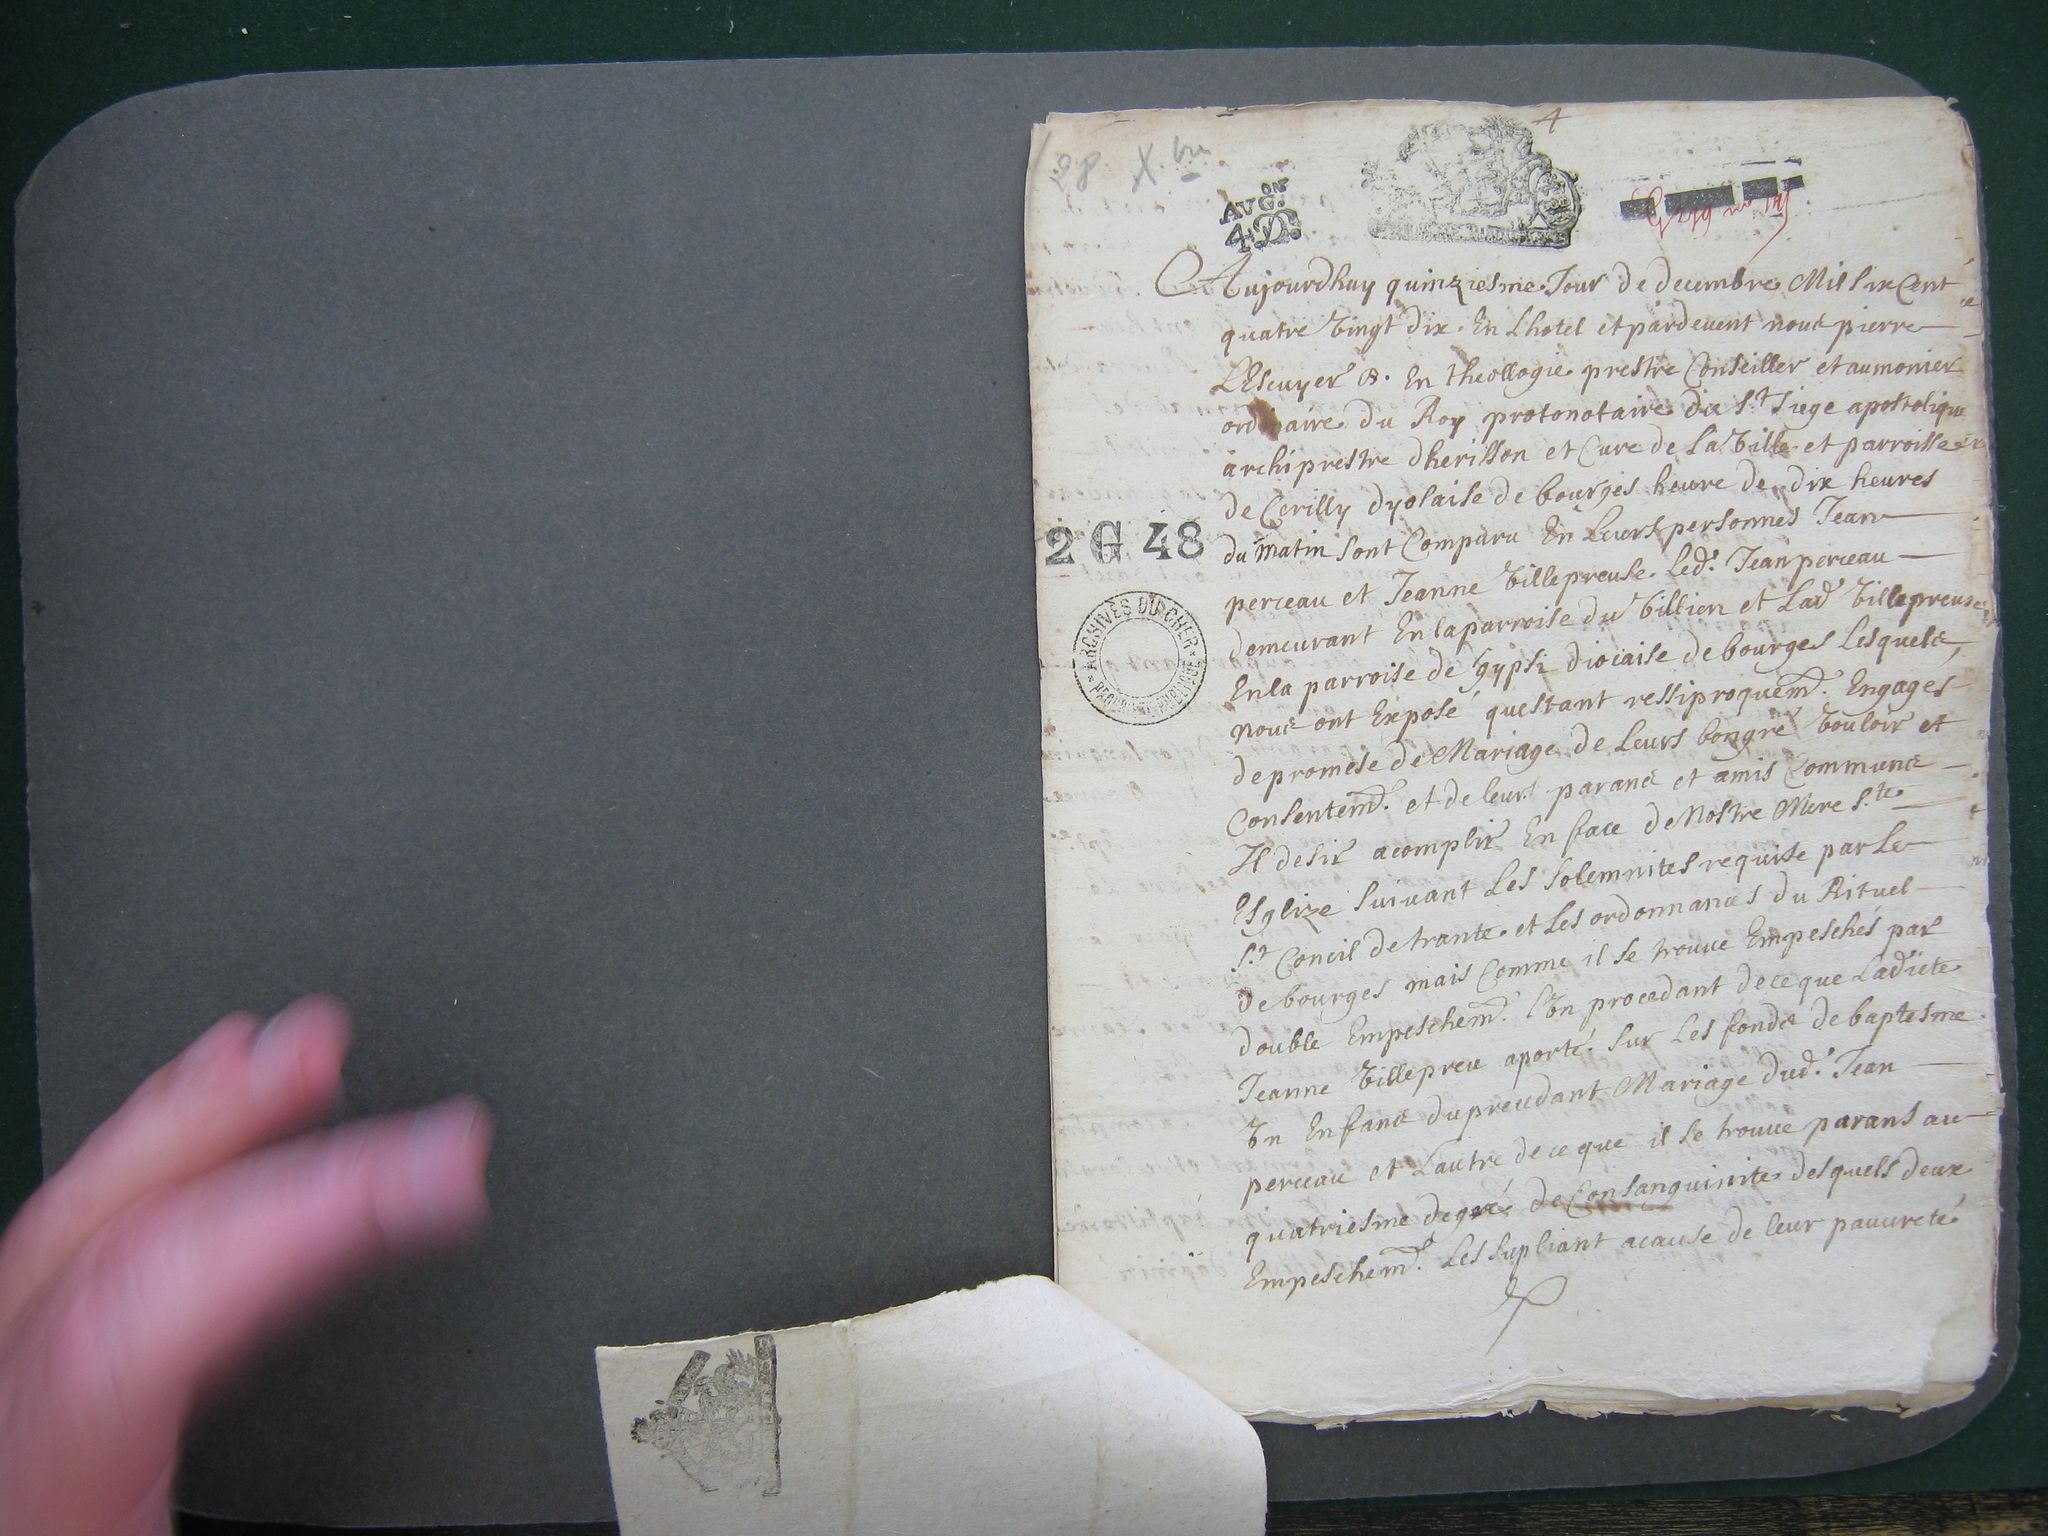 4
X.bre
AVG.ON
4D.
Aujourdhuy quinziesme Jour de decembre Mil six Cent
quatre vingt dix. En Lhotel et pardevent nous pierre
LEscuyer B. En theollogie prestre Conseiller et aumonier
ordinaire du Roy protonotaire du St Siege apostolique
archiprestre dherisson et Cure de La Ville et parroisse
de Cerilly dyolaise de bourges heure de dix heures
du matin sont Comparu En Leurs personnes Jean
2 G 48
perceau et Jeanne Villepreuse Led. Jean perceau
demeurant En la parroise du Villien et Lad Villepreuse
ARCHIVES DU CHER
En la parroise de gypsi diocaise de bourges Lesquels
nous ont Exposé questant ressiproquemt. Engages
de promese de Mariage de Leurs bongré vouloir et
Consentemt. et de leurs parans et amis Communs
Il desir acomplir En face de Nostre Mere Ste
Esglize suivant Les solemnites requise par Le
St Concil de trante et Les ordonnances du Rituel
de bourges mais Comme il se trouve Empeschés par
double Empeschemt. Lon procedant de ce que Ladicte
Jeanne Villepreu aporté sur Les fonds de baptesme
Un Enfans du precedant Mariage dud. Jean
perceau et Lautre de ce que il se trouve parans au
quatriesme degré de Consanguinite desquels deux
Empeschemt. Les supliant acause de leur pauureté